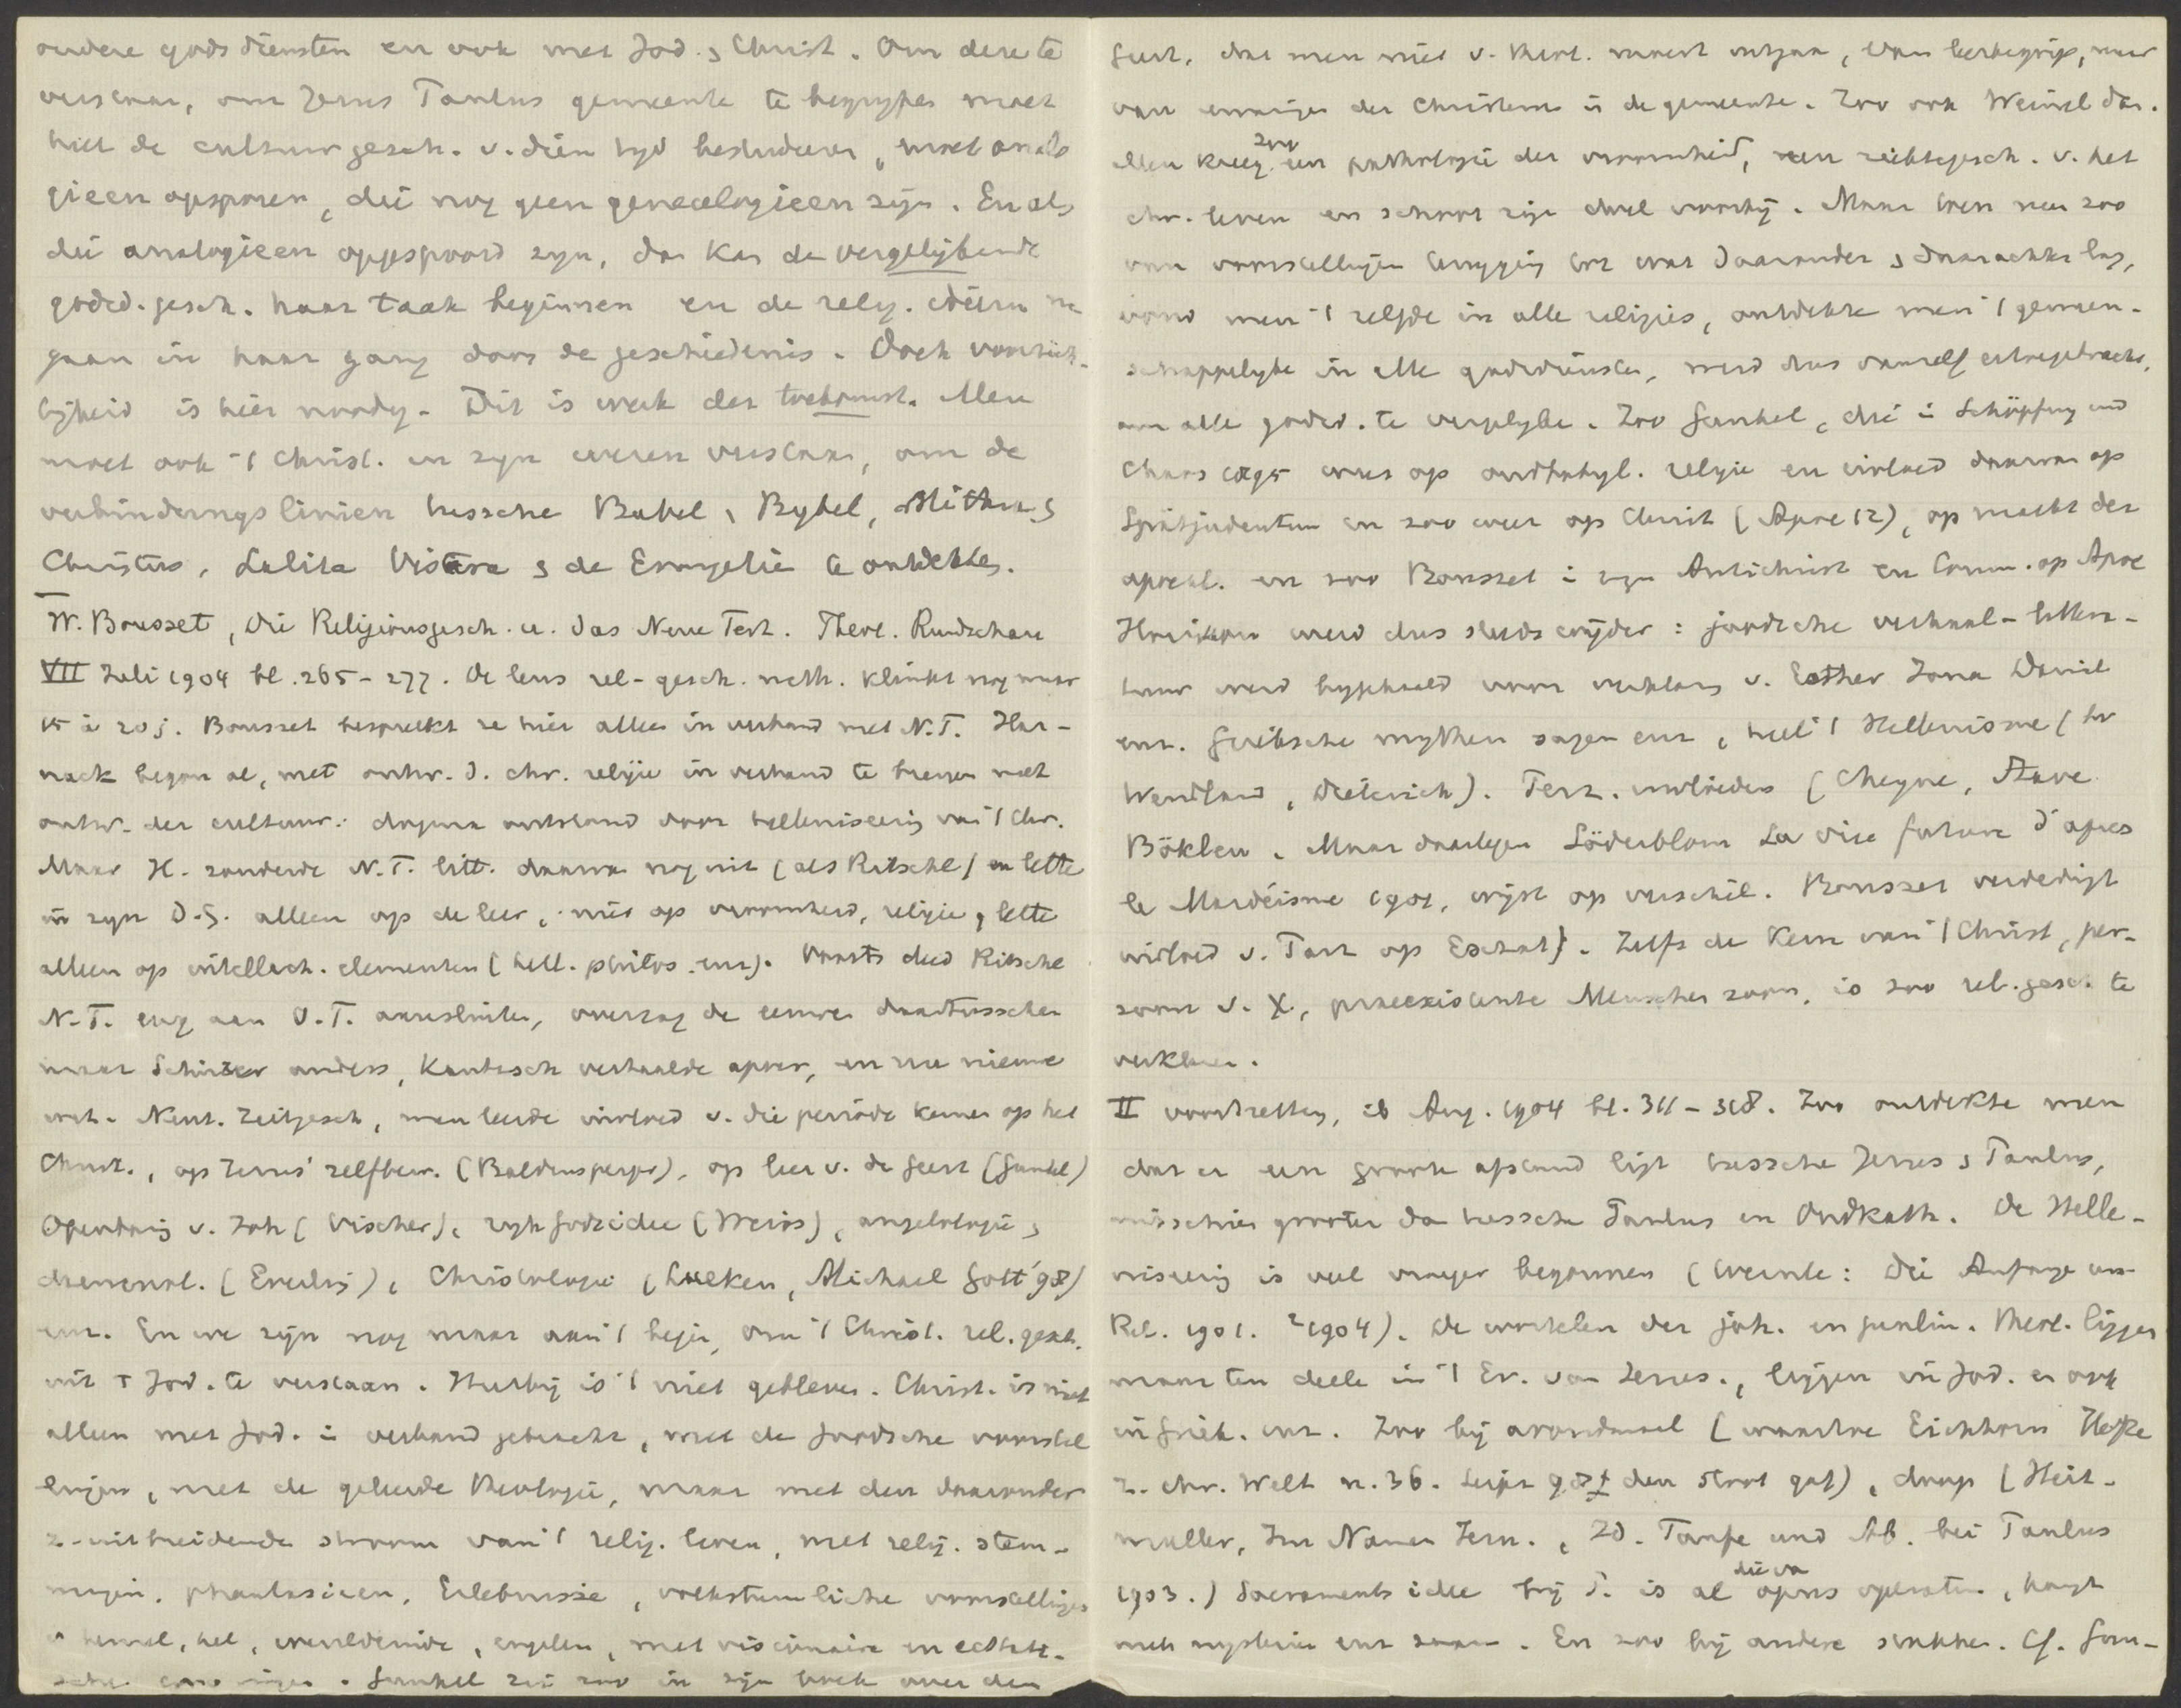 andere godsdiensten en ook met Jod. & Christ. Om deze te
verstaan, om Jezus Paulus gemeente te begrypen moet
heel de cultuurgesch. v. dien tyd bestudeeren, moet analo
gieen opsporen, die nog geen genealogieen zyn. En als
die analogieen opgespoord zyn, dan kan de vergelijkende
godsd. gesch. haar taak beginnen en de relig. ideeen na
gaan in haar gang door de geschiedenis. Doch voorzich-
tigheid is hier noodig. Dit is werk der toekomst. Men
moet ook 't Christ. in zyn wezen verstaan, om de
verbindingslinien tussche Babel & Bybel, Mithras &
Christus, Lalita Vistara & de Evangelie te ontdekken.
W. Bousset, Die Religionsgesch. u. das Neue Test. Theol. Rundschau
VII Juli 1904 bl. 265-277. De leus rel-gesch. meth. klinkt nog maar
15 à 20 j. Bousset bespreekt ze hier alleen in verband met N.T. Har-
nack begon al, met ontw. d. chr. religie in verband te brengen met
ontw. der cultuur: dogma ontstond door helleniseering van 't Chr.
Maar H. zonderde N.T. litt. daarvan nog uit (als Ritschl) en lette
in zyn D.G. alleen op de leer, niet op vroomheid, religie, lette
alleen op intellect. elementen (hell. philos. enz). Voorts deed Ritschl
N.T. eng aan O.T. aansluiten, overzag de eeuwen daartusschen
maar Schürer anders, Kautzsch vertaalde apocr, en zoo nieuwe
wet. Neut. Zeitgesch, men leerde invloed v. die periode kennen op het
Christ., op Jezus' zelfbew. (Baldensperger), op leer v. de Geest (Gunkel)
Openbaring v. Joh (Vischer), ryk Godsidee (Weiss), angelologie &
daemonol. (Everling), Christologie (Lueken, Michael Gött '98)
enz. En we zyn nog maar aan 't begin, om 't Christ. rel. gesch.
uit 't Jod. te verstaan. Hierby is 't niet gebleven. Christ. is niet
alleen met Jod. in verband gebracht, met de Joodsche voorstel
lingen, met de geleerde theologie, maar met den daaronder
z. uitbreidende stroom van 't relig. leven, met relig. stem-
mingen, phantasieen, Erlebnisse, volkstümliche voorstellingen
v hemel, hel, wereldeinde, engelen, met visionaire en extati-
sche ervaringen. Gunkel zei zoo in zyn boek over den
Geest, dat men niet v. theol. moest uitgaan, van leerbegrip, maar
van ervaringen der Christenen in de gemeente. Zoo ook Weinel dan.
Men kreeg zoo een pathologie der vroomheid, een zielsgesch. v. het
chr. leven en schoot zyn doel voorby. Maar toen men zoo
van voorstellingen terugging tot wat daaronder & daarachter lag,
vond men 't zelfde in alle religies, ontdekte men 't gemeen-
schappelyke in alle godsdiensten, werd dus vanzelf ertoe gebracht,
om alle godsd. te vergelyke. Zoo Gunkel, die in Schöpfung und
Chaos 1895 wees op oudbabyl. religie en invloed daarvan op
Spätjudentum en zoo weer op Christ (Apoc 12), op macht der
apocal. en zoo Bousset in zyn Antichrist en Comm. op Apoc
Horizon werd dus steeds wijder: joodsche verhaal-littera-
tuur werd bygehaald voor verklaring v. Esther Jona Daniel
enz. Grieksche mythen sagen enz, heel 't Hellenisme (
Wendland, Dieterich). Perz. invloeden (Cheyne, Stave
Böklen. Maar daartegen Söderblom La vie future d'apres
le Mazdéisme 1901, wyst op verschil. Bousset verdedigt
invloed v. Parz op Eschat). Zelfs de kern van 't Christ, per-
soon v. X, praeexistente Menschen zoon, is zoo rel. gesch. te
verklaren.
II voortzetting, ib Aug. 1904 bl. 311-318. Zoo ontdekte men
dat er een groote afstand ligt tussche Jezus & Paulus,
misschien grooter dan tussche Paulus en Oudkath. De Helle-
niseering is veel vroeger begonnen (Wernle: Die Anfänge uns
Rel. 1901. ²1904). De wortelen der joh. en paulin. theol. liggen
maar ten deele in 't Ev. van Jezus, liggen in Jod. en ook
in Griek. enz. Zoo by avondmaal (waartoe Eichhorn Hefte
z. chr. Welt n. 36. Leipz 98 den stoot gaf), doop (Heit-
muller, Im Namen Jesu., Id. Taufe und Ab. bei Paulus
1903.) Sacraments idee by P. is al opus operatum, hangt
met mysterien enz saam. En zoo by andere stukken. Cf. Gun-